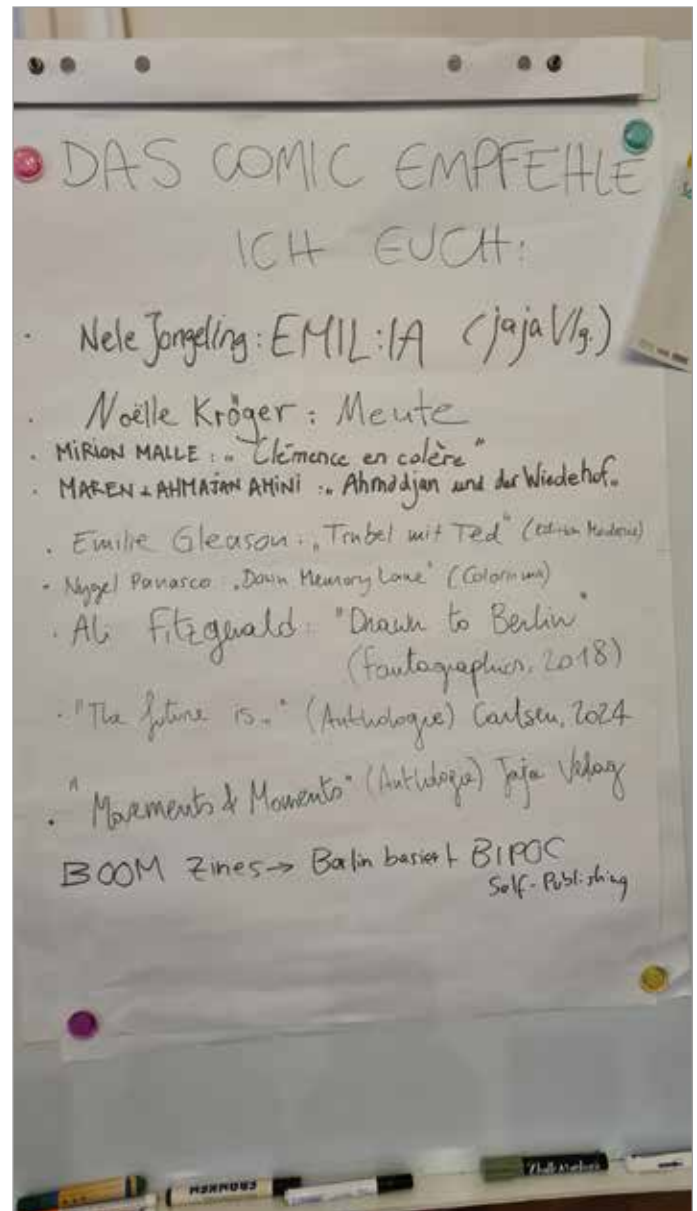 DAS COMIC EMPFEHLE
ICH EUCH:
· Nele Jongeling: EMIL:IA (jaja Vlg.)
· Noëlle Kröger: Meute
· MIRION MALLE: „Clémence en colère"
· MAREN + AHMAJAN AMINI: „Ahmadjan und der Wiedehof„
· Emilie Gleason: „Trubel mit Ted" (Edition Moderne)
· Nygel Panasco „Down Memory Lane" (Colorama)
· Ali Fitzgerald: "Drawn to Berlin"
(Fantagraphics, 2018)
· "The future is.." (Anthologie) Carlsen, 2024
· "Movements & Moments" (Anthologie) Jaja Verlag
BOOM Zines → Berlin basiert BIPOC
Self-Publishing